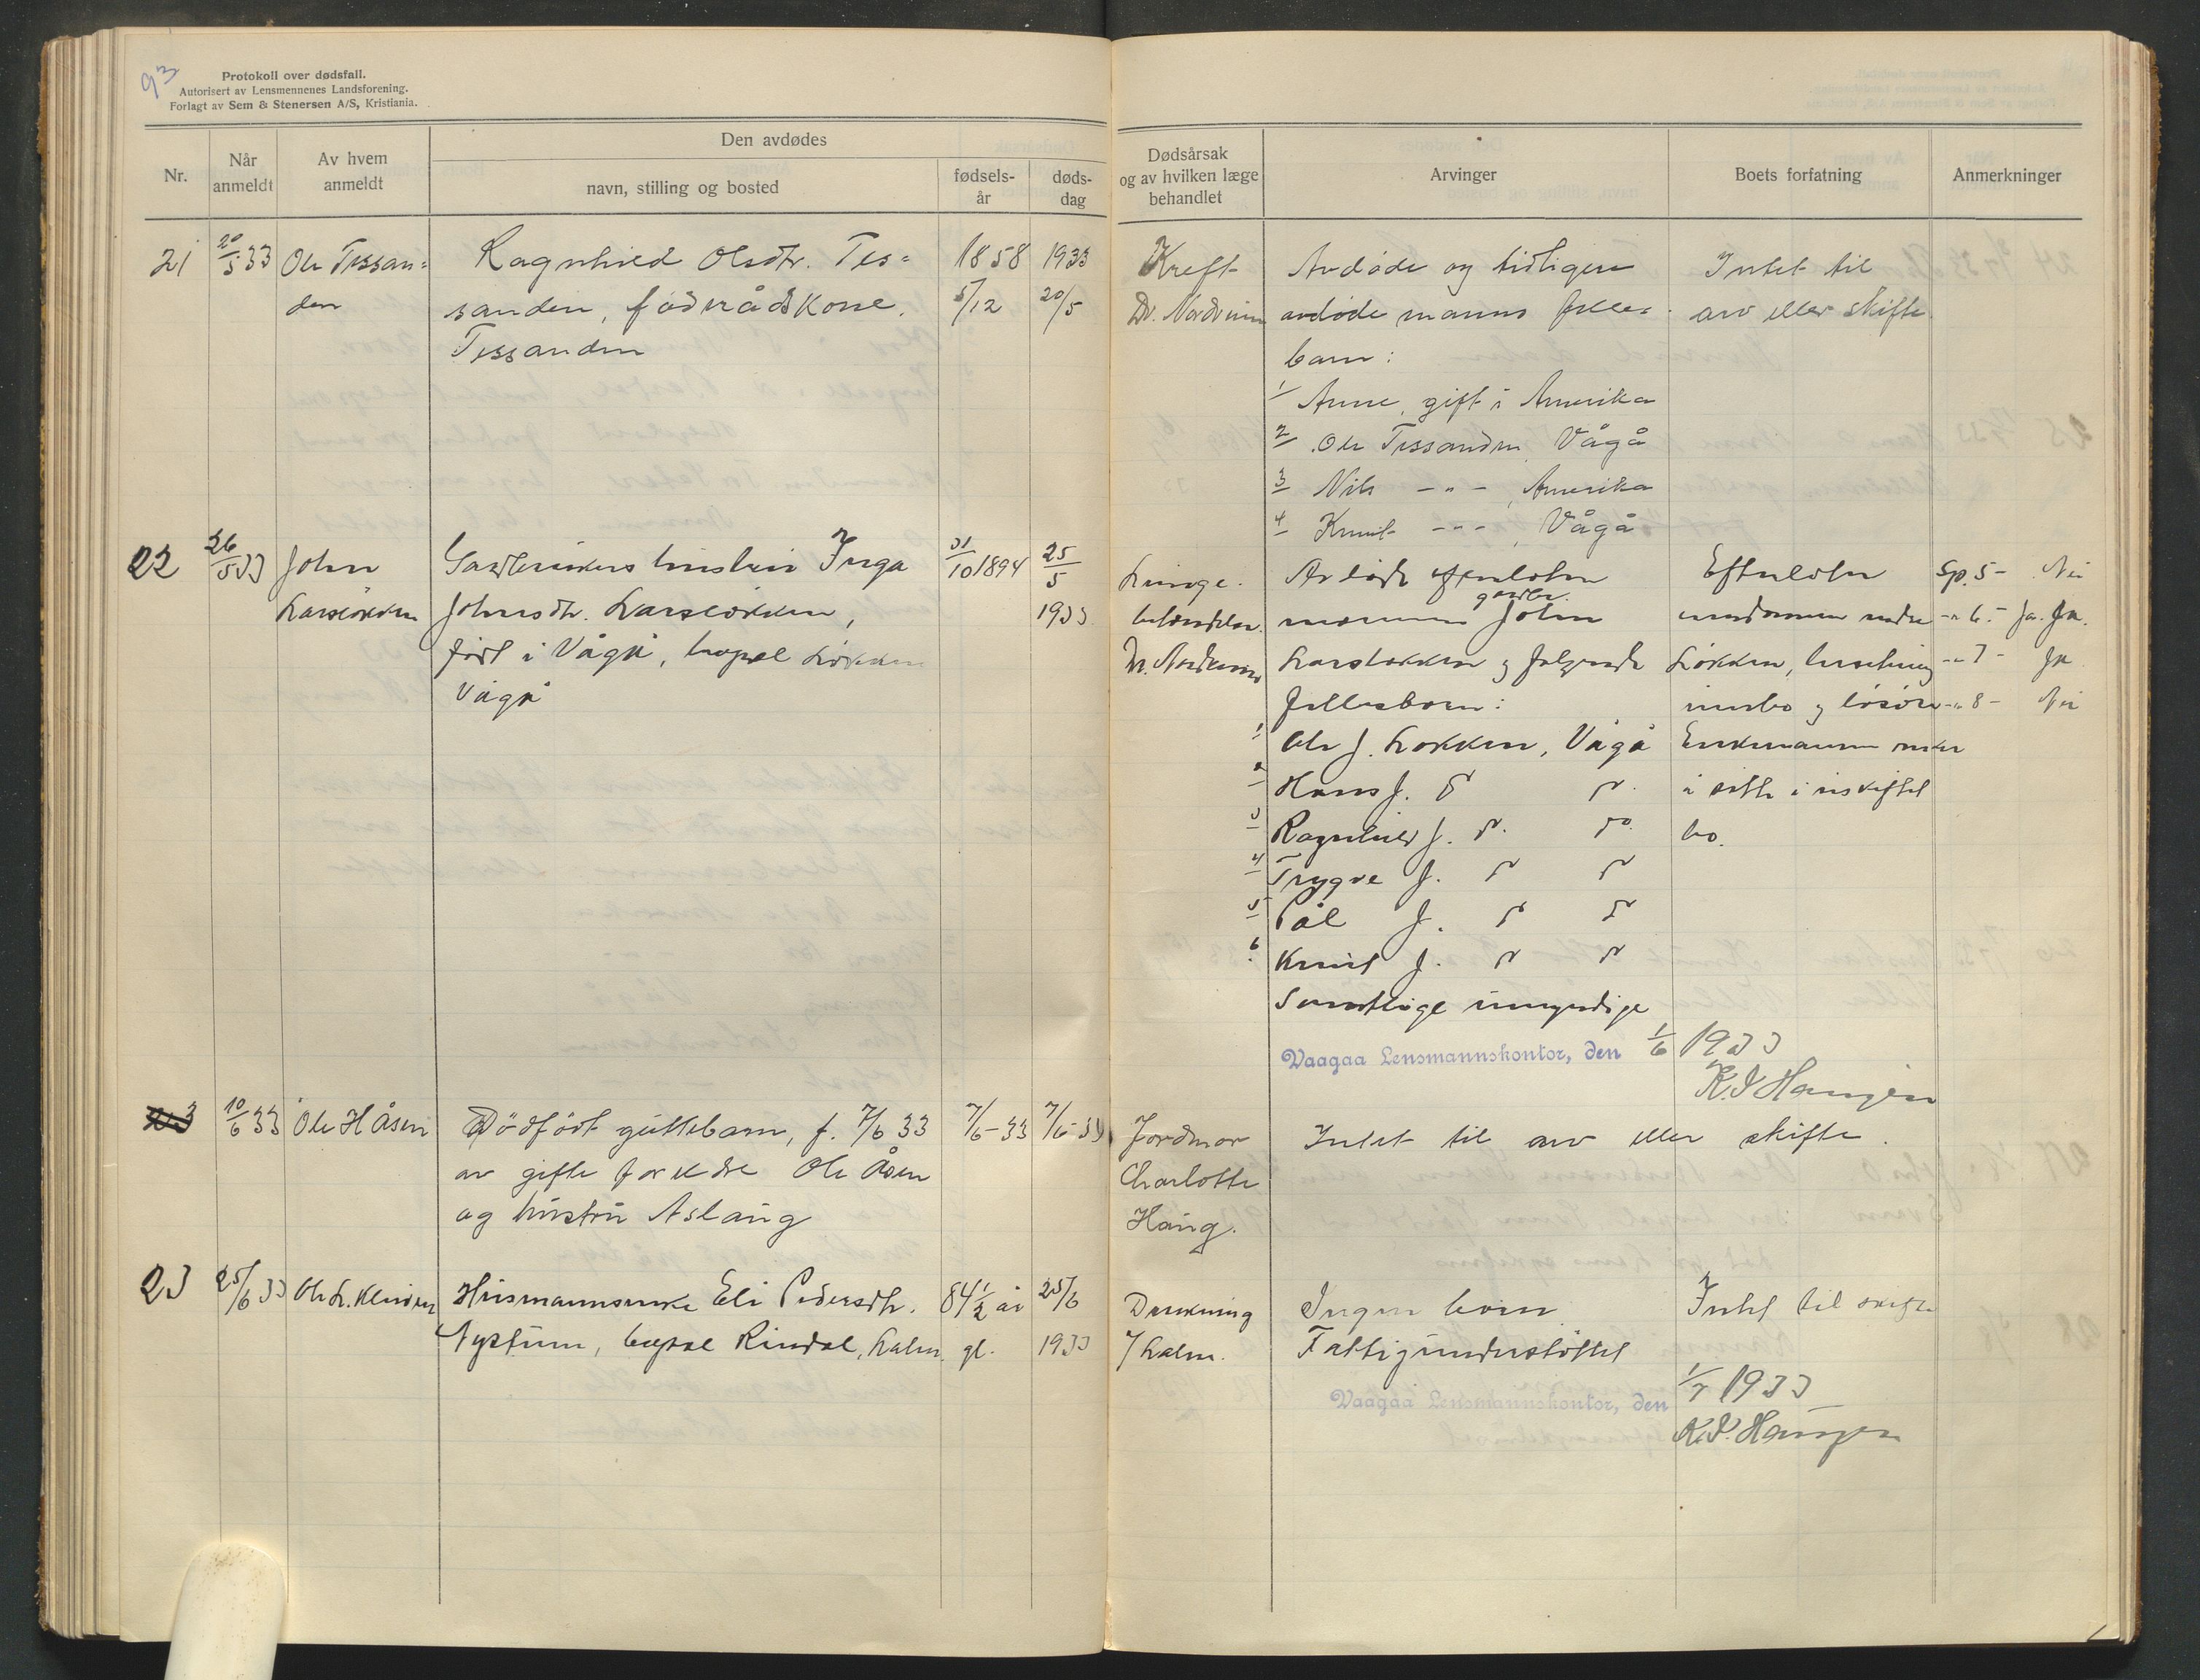 93
Protokoll over dødsfall.
Autorisert av Lensmennenes Landsforening.
Forlagt av Sem & Stenersen A/S, Kristiania.
Nr.
Når anmeldt
Av hvem anmeldt
Den avdødes
navn, stilling og bosted
fødsels-år
døds-dag
Dødsårsak og av hvilken læge behandlet
Arvinger
Boets forfatning
Anmerkninger
21
20/5 33
Ole Tessan=
den
Ragnhild Olsdtr. Tes=
sanden, føderådskone,
Tessanden
1858
5/12
1933
20/5
Kreft
Dr.
Avdøde og tidligere
avdøde manns felles
barn:
1 Anne, gift i Amerika
2 Ole Tessanden, Vågå
3 Nils -"- , Amerika
4 Knut -"- , Vågå
Intet til
arv eller skifte
22
26/5 33
John
Larsløkken
Gardbrukers hustru Inga
Johnsdtr. Larsløkken,
født i Vågå, bopæl Løkken
Vågå
31/10 1894
25/5
1933
Dr.
gardbr.
John
Larsløkken og følgende
fellesbarn:
1 Ole J. Løkken, Vågå
2 Hans J. do do
3 Ragnhild J. do. do.
4 Trygve J. do do
5 Pål J. do do
6 Knut J. do do
Samtlige umyndige
Efterlater
Løkken, besetning
innbo og løsøre
Enkemannen ønsker
å sitte i uskiftet
bo.
Sp. 5 - Nei
-"- 6 - Ja. Ja.
-"- 7 - Ja
-"- 8 - Nei
Vaagaa Lensmannskontor, den 1/6 1933
23
10/6 33
Ole H Åsen
Dødfødt guttebarn, f. 7/6 33
av gifte foreldre Ole Åsen
og hustru Aslaug
7/6-33
7/6-33
Jordmor
Charlotte
Haug.
Intet til arv eller skifte.
23
25/6 33
Husmannsenke Eli Pedersdtr.
Nystuen, bopæl Rindal, Lalm.
84 1/2 år
gl.
25/6
1933
Drukning
i Lalm.
Ingen barn
Fattigunderstøttet
Intet til skifte
Vaagaa Lensmannskontor, den 1/7 1933